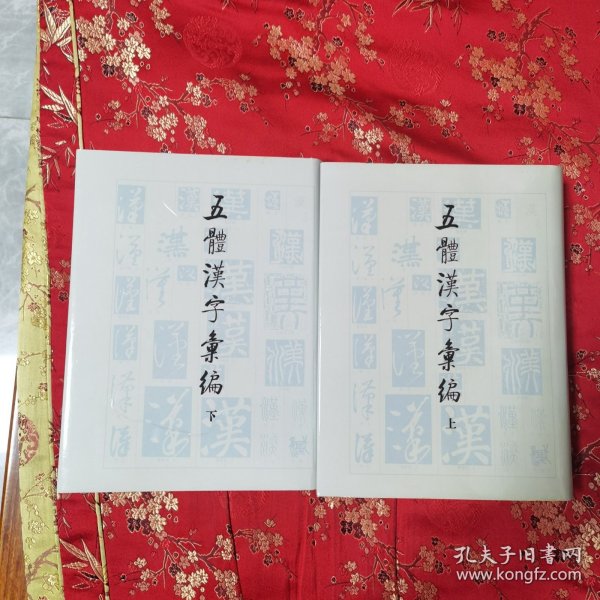 五體漢字彙編
下
五體漢字彙編
上
孔夫子旧书网
www.kongfz.com